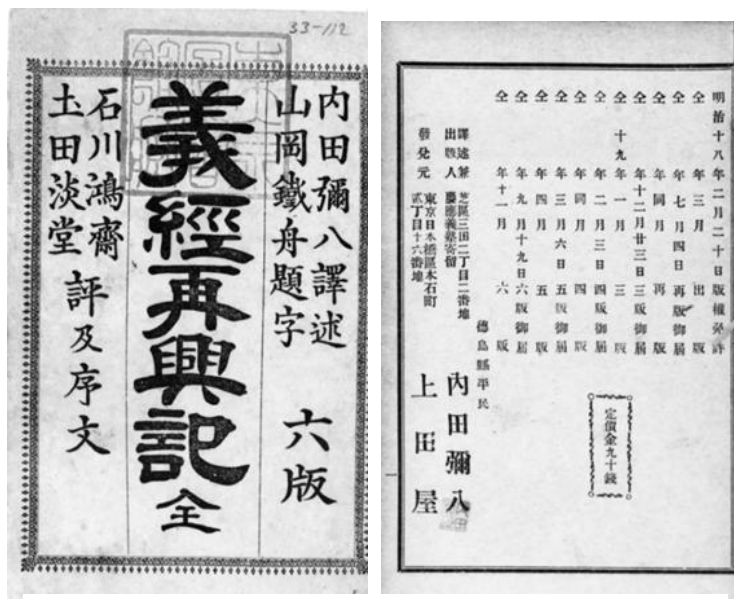 33-112
内田彌八譯述
山岡鐵舟題字
六版
義經再興記
全
石川鴻齋
土田淡堂
評及序文
明治十八年二月二十日版權免許
仝年三月出版
仝年七月四日再版御届
仝年同月再版
仝年十二月廿三日三版御届
仝十九年一月三版
仝年二月三日四版御届
仝年同月四版
仝年三月六日五版御届
仝年四月五版
仝年九月十九日六版御届
仝年十一月六版
定價金九十錢
德島縣平民
譯述兼
出版人
芝區三田二丁目二番地
慶應義塾寄留
內田彌八
發兌元
東京日本橋區本石町
貳丁目十六番地
上田屋